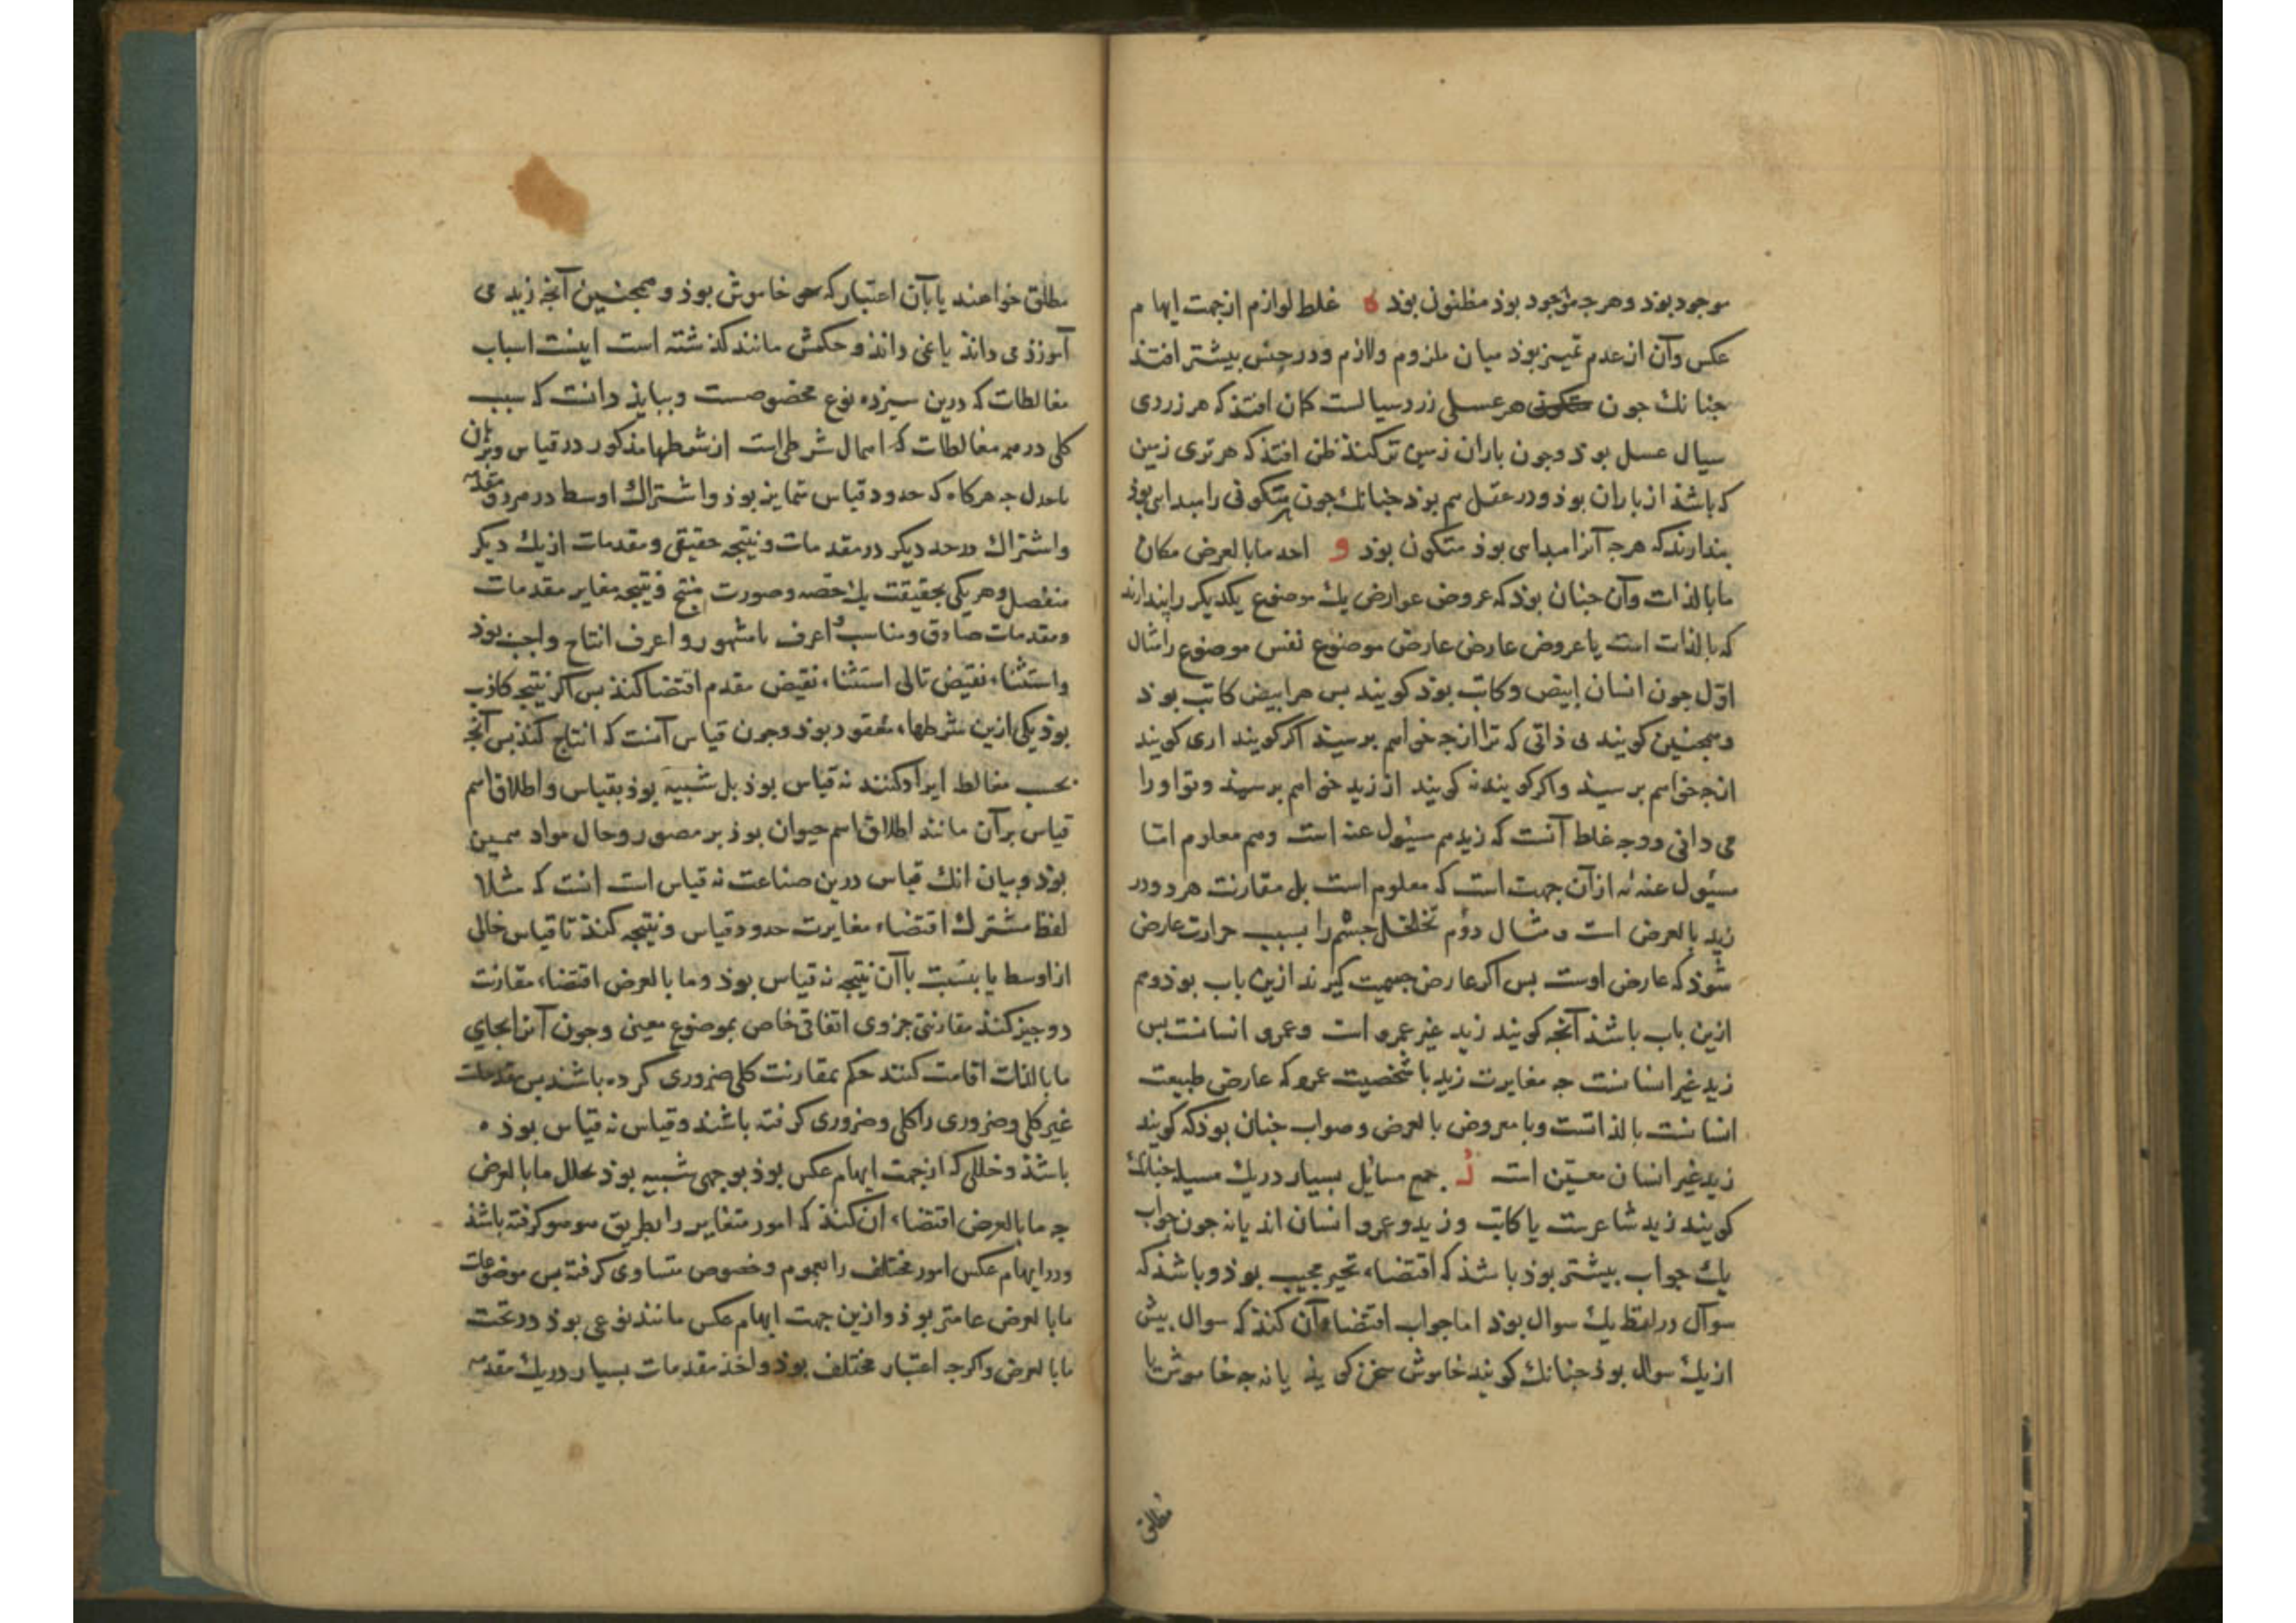 موجود بوذ وهر جه موجود بوذ مظنون بوذ ه غلط لوازم از جهت ایهام
عکس وآن از عدم تمییز بوذ میان ملزوم ولازم ودر حس بیشتر افتذ
جنانك جون هر عسلی زرد سیالست کمان افتذ که هر زردی
سیال عسل بوذ وجون باران زمین تر کنذ ظن افتذ که هر تری زمین
که باشذ از باران بوذ ودر عقل هم بوذ جنانك جون هر متکونی را مبداءی بوذ
بندارند که هرجه آنرا مبداءی بوذ متکون بوذ و اخذ ما بالعرض مکان
ما بالذات وآن جنان بوذ که عروض عوارض یك موضوع یکدیکر را پندارند
که بالذات است یا عروض عارض عارض موضوع نفس موضوع را مثال
اول جون انسان ابیض وکاتب بوذ کویند بس هر ابیض کاتب بوذ
وهمجنین کویند می ذانی که ترا از جه خواهم برسیذ اکر کویند اری کویند
ازجه خواهم برسیذ واکر کویند نه کویند از زید خواهم برسید وتو اورا
می دانی ووجه غلط آنست که زید هم مسئول عنه است وهم معلوم اما
مسئول عنه نه از آن جهت است که معلوم است بل مقارنت هر دو در
زید بالعرض است ومثال دوم تخلخل جسم را بسبب حرارت عارض
شوذ که عارض اوست بس اکر عارض جسمیت کیرند ازین باب بوذ وهم
ازین باب باشذ آنجه کویند زید غیر عمرو است وعمرو انسانست بس
زید غیر انسانست جه مغایرت زید با شخصیت عمرو که عارض طبیعت
انسانست بالذاتست وبا معروض بالعرض وصواب جنان بوذ که کویند
زید غیر انسان معین است ز جمع مسائل بسیار در یك مسیله جنانك
کویند زید شاعرست یا کاتب وزید وعمرو انسان اند یا نه جون جواب
یك جواب بیشتر بوذ باشذ که اقتضاء تحیر مجیب بوذ وباشذ که
سوآل در لفظ یك سوال بوذ اما جواب اقتضاء آن کنذ که سوال بیش
از یك سوال بوذ جنانك کویند خاموش سخن کوید یا نه جه خاموش یا
مطلق
مطلق خواهند یا بآن اعتبار که خاموش بوذ وهمجنین آنجه زید می
آموزذ می داند یا نمی داند وحکمش مانند کذشته است اینست اسباب
مغالطات که درین سیزده نوع مخصوصست وببایذ دانست که سبب
کلی در همه مغالطات که اهمال شرطی است از شرطها مذکور در قیاس وبرهان
یا جدل جه هرکاه که حدود قیاس متمایز بوذ واشتراك اوسط در هر دو مقدمه
واشتراك در حد دیکر در مقدمات ونتیجه حقیقی ومقدمات از یك دیکر
منفصل وهر یکی بحقیقت یك قضیه وصورت منتج ونتیجه مغایر مقدمات
ومقدمات صادق ومناسب واعرف یا مشهور واعرف انتاج واجب بوذ
واستثناء نقیض تالی استثناء نقیض مقدم اقتضا کنذ بس اکر نتیجه کاذب
بوذ یکی ازین شرطها مفقود بوذ وجون قیاس آنست که انتاج کنذ بس آنجه
بحسب مغالط ایراد کنند نه قیاس بوذ بل شبیه بوذ بقیاس واطلاق اسم
قیاس بر آن مانند اطلاق اسم حیوان بوذ بر مصور وحال مواد همین
بوذ وبیان انك قیاس درین صناعت نه قیاس است انست که مثلا
لفظ مشترك اقتضاء مغایرت حدود قیاس ونتیجه کنذ تا قیاس خالی
از اوسط یا بنسبت با آن نتیجه نه قیاس بوذ وما بالعرض اقتضاء مقارنت
دوجیز کنذ مقارنتی جزوی اتفاقی خاص بموضوع معین وجون آنرا بجای
ما بالذات اقامت کنند حکم بمقارنت کلی ضروری کرده باشند بس مقدمات
غیر کلی وضروری را کلی وضروری کرفته باشند وقیاس نه قیاس بوذ ه
باشذ وخللی که از جهت ایهام عکس بوذ بوجهی شبیه بوذ بخلل ما بالعرض
جه ما بالعرض اقتضاء ان کنذ که امور متغایر را بطریق هو هو کرفته باشذ
ودر ایهام عکس امور مختلف را بعموم وخصوص متساوی کرفته بس موضوعات
ما بالعرض عامتر بوذ وازین جهت ایهام عکس مانند نوعی بوذ در تحت
ما بالعرض واکرجه اعتبار مختلف بوذ واخذ مقدمات بسیار در یك مقدمه